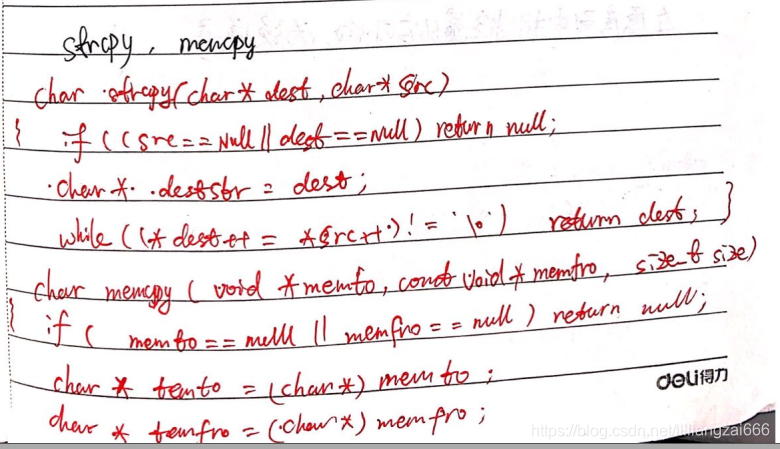 strcpy, memcpy
char strcpy(char* dest, char* src)
{ if ((src==Null || dest==Null) return null;
char* deststr = dest;
while ((*dest++ = *src++) != '\0') return dest; }
char memcpy ( void *memto, const void * memfro, size_t size)
{ if ( memto == null || memfro == null ) return null;
char * temto = (char*) memto ;
deli得力
char * temfro = (char*) memfro ;
https://blog.csdn.net/lilliangzai666